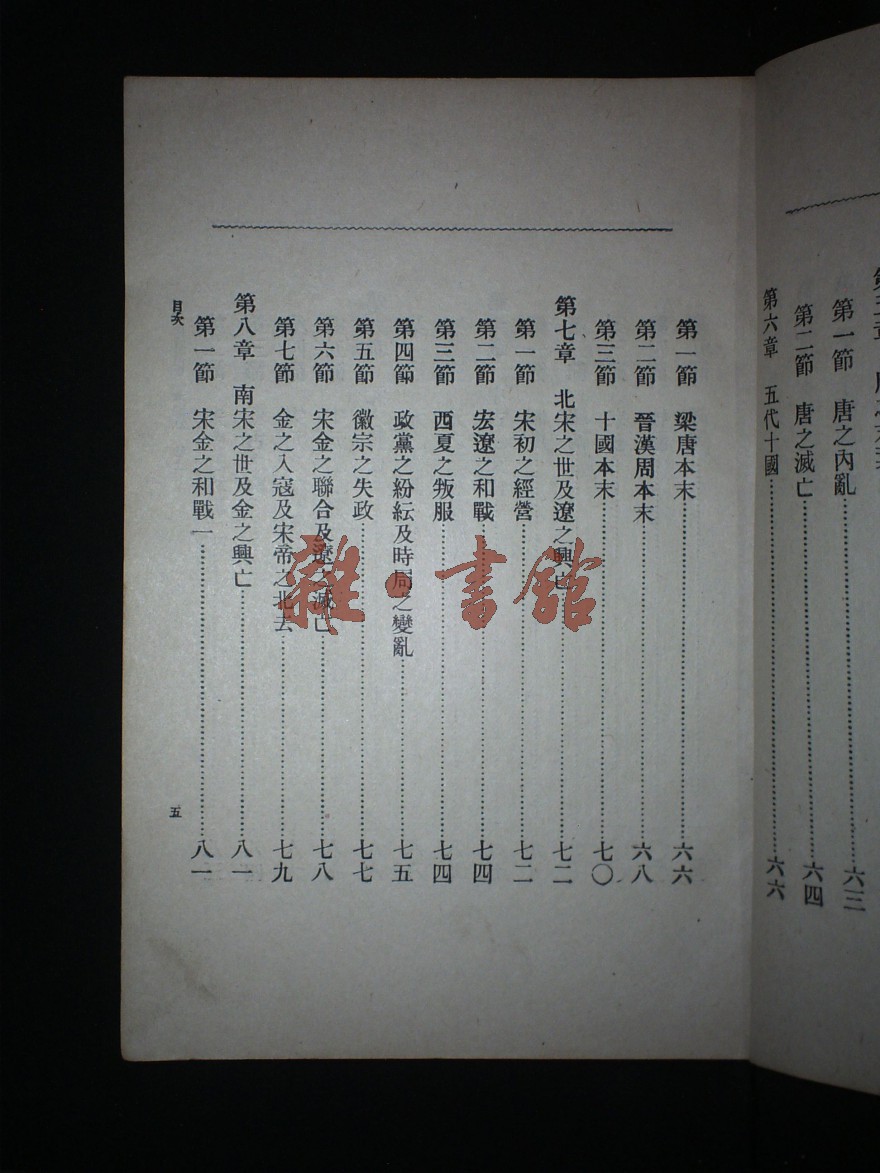 第一節 唐之內亂……六三
第二節 唐之滅亡……六四
第六章 五代十國……六六
第一節 梁唐本末……六六
第二節 晉漢周本末……六八
第三節 十國本末……七〇
第七章 北宋之世及遼之興亡……七二
第一節 宋初之經營……七二
第二節 宏遼之和戰……七四
第三節 西夏之叛服……七四
第四節 政黨之紛紜及時局之變亂……七五
第五節 徽宗之失政……七七
第六節 宋金之聯合及遼之滅亡……七八
第七節 金之入寇及宋帝之北去……七九
第八章 南宋之世及金之興亡……八一
第一節 宋金之和戰一……八一
目次
五
雜·書館